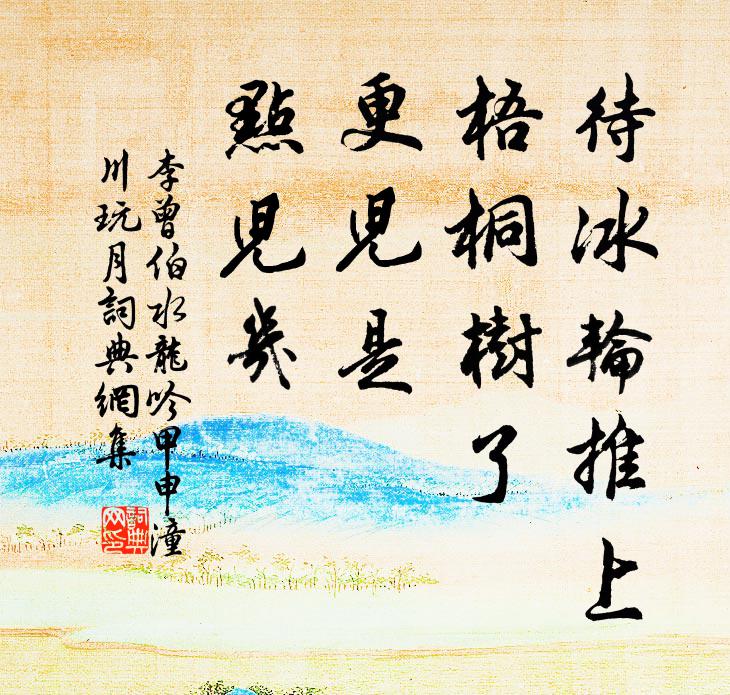 待冰輪推上
梧桐樹了
更兒是
點兒幾
李曾伯水龍吟甲申潼
川玩月詞典網集
詞典
网